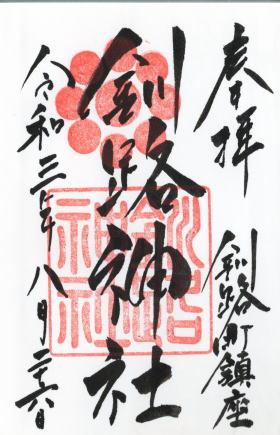 奉拝
釧路町鎮座
釧路神社
釧路神社
令和三年八月二十六日